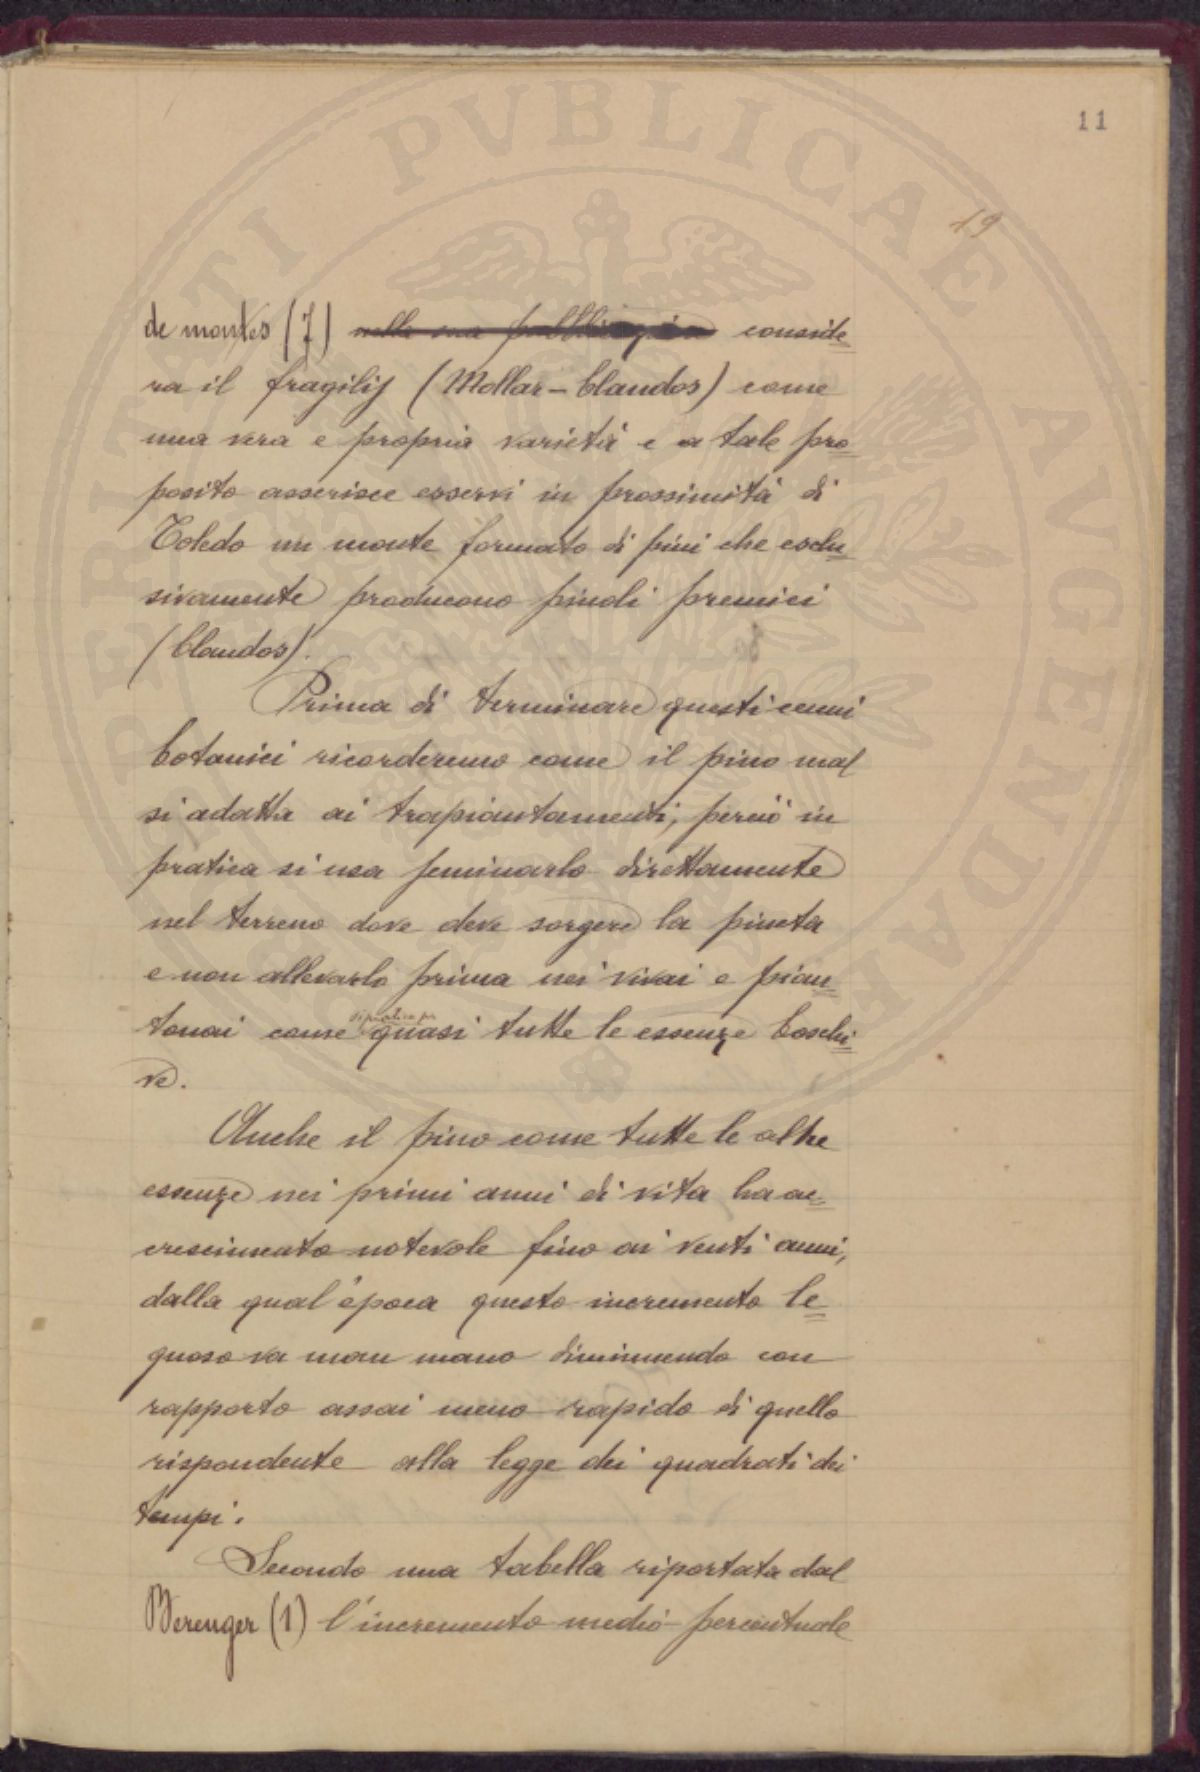 11
19
de montes (7) nella sua pubblicazione conside=
ra il fragilis (Mollar-Blandos) come
una vera e propria varietà e a tale pro=
posito asserisce esservi in prossimità di
Toledo un monte formato di pini che esclu=
sivamente producono pinoli premici
(Blandos).
Prima di terminare questi cenni
botanici ricorderemo come il pino mal
si adatta ai trapiantamenti, perciò in
pratica si usa seminarlo direttamente
nel terreno dove deve sorgere la pineta
e non allevarlo prima nei vivai e pian=
tonai come si pratica per quasi tutte le essenze boschi=
ve.
Anche il pino come tutte le altre
essenze nei primi anni di vita ha ac=
crescimento notevole fino ai venti anni,
dalla qual'epoca questo incremento le=
gnoso va man mano diminuendo con
rapporto assai meno rapido di quello
rispondente alla legge dei quadrati dei
tempi.
Secondo una tabella riportata dal
Berenger (1) l'incremento medio percentuale
PVBLICAE AVGENDAE